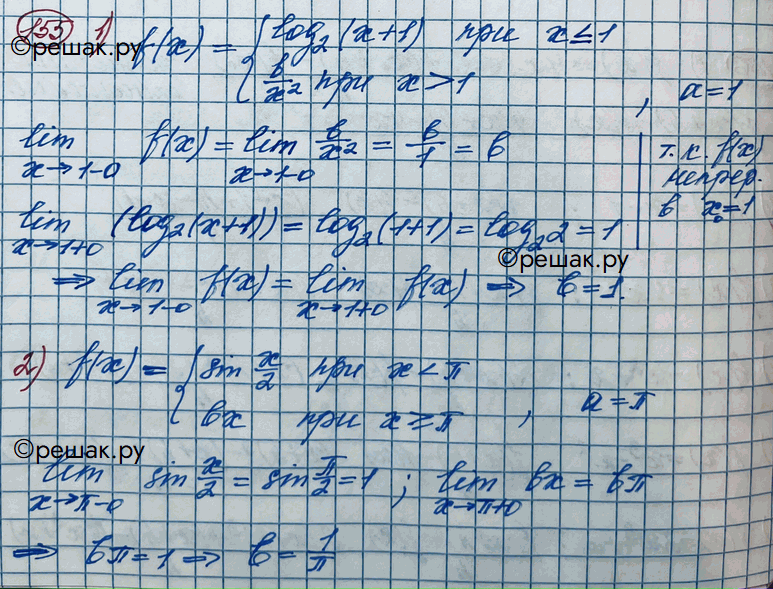 155 1) f(x) = { log₂(x+1) при x ≤ 1
©решак.ру
b/x² при x > 1 , a = 1
lim x→1-0 f(x) = lim x→1-0 b/x² = b/1 = b | т.к. f(x)
непрер.
в x₀=1
lim x→1+0 (log₂(x+1)) = log₂(1+1) = log₂2 = 1
©решак.ру
⇒ lim x→1-0 f(x) = lim x→1+0 f(x) ⇒ b = 1.
2) f(x) = { sin x/2 при x < π
bx при x ≥ π , a = π
©решак.ру
lim x→π-0 sin x/2 = sin π/2 = 1 ; lim x→π+0 bx = bπ
⇒ bπ = 1 ⇒ b = 1/π